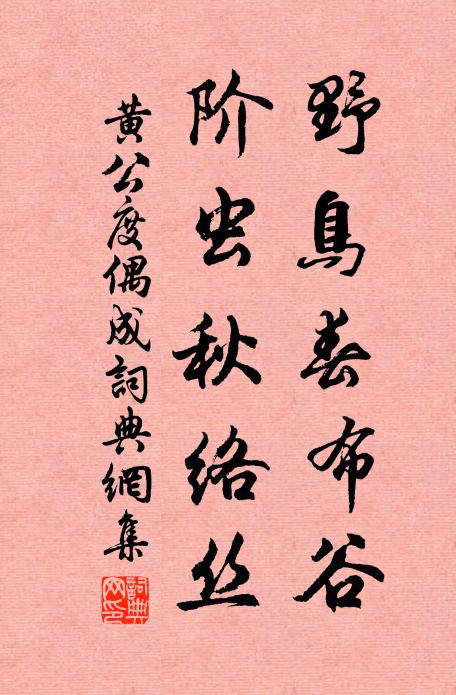 野鳥春布谷
阶虫秋络丝
黄公度偶成詞典網集
詞典
网印